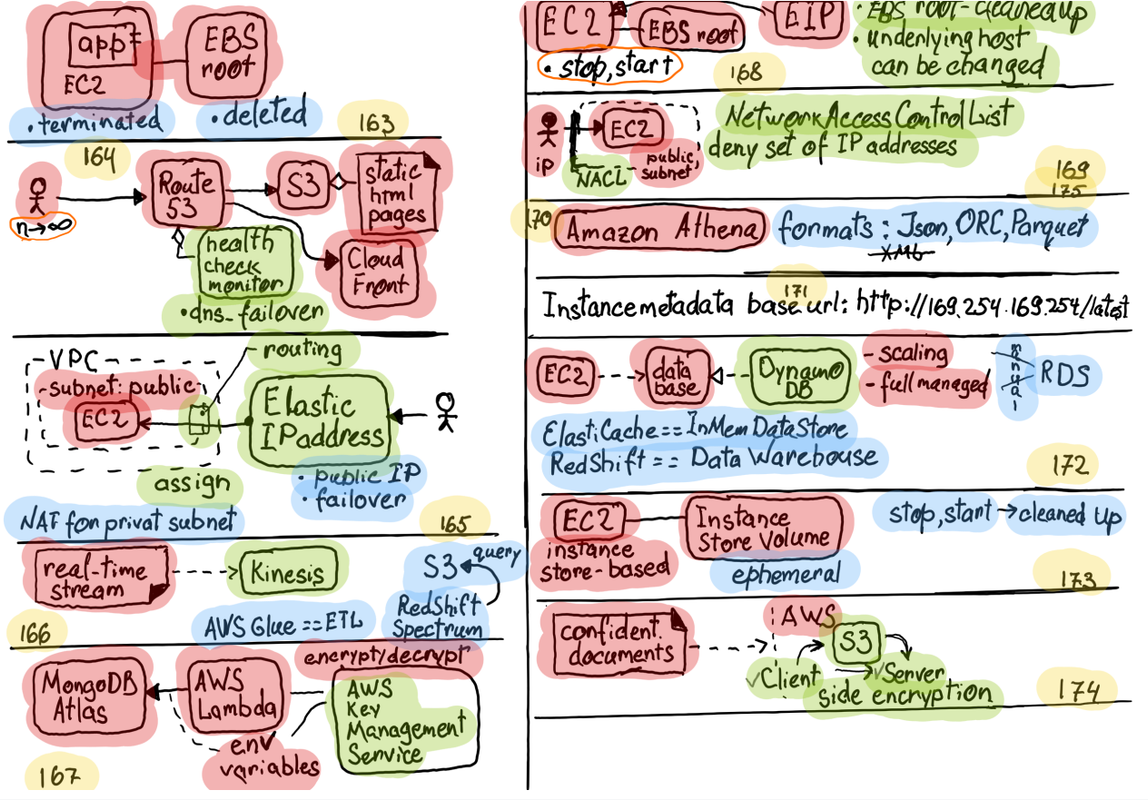 app
EC2
EBS
root
• terminated
• deleted
163
164
n→∞
Route
53
S3
static
html
pages
health
check
monitor
• dns-failover
Cloud
Front
VPC
subnet: public
EC2
routing
Elastic
IP address
assign
• public IP
• failover
NAT for privat subnet
165
real-time
stream
Kinesis
S3
query
RedShift
Spectrum
AWS Glue == ETL
166
MongoDB
Atlas
AWS
Lambda
encrypt/decrypt
AWS
Key
Management
Service
env
variables
167
EC2
EBS root
EIP
• EBS root-cleaned up
• underlying host
can be changed
• stop, start
168
ip
EC2
public,
subnet
NACL
Network Access Control List
deny set of IP addresses
169
175
170
Amazon Athena
formats: Json, ORC, Parquet
XML
171
Instance metadata base url: http://169.254.169.254/latest
EC2
data
base
Dynamo
DB
- scaling
- full managed
manual
RDS
ElastiCache == InMemDataStore
RedShift == Data Warehouse
172
EC2
instance
store-based
Instance
Store Volume
ephemeral
stop, start → cleaned up
173
confident.
documents
AWS
S3
Client
Server
side encryption
174